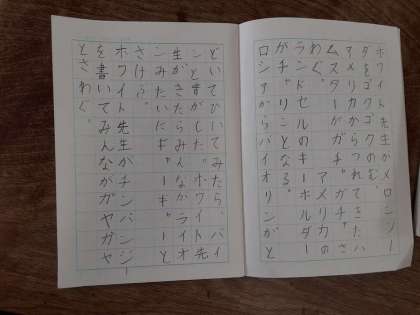 ホワイト先生がメロンソー
ダをゴクゴクのむ。
アメリカからつれてきたハ
ムスターが
わぐ。アメリカの
ランドセルのキーホルダー
がガチャリとなる。
ロシアからバイオリンがと
どいてひいてみたら、バイ
ンと音がした。ホワイト先
生がきたらみんながライオ
ンみたいにギャーギャーと
さけぶ。
ホワイト先生がチンパンジー
を書いてみんながガヤガヤ
とさわぐ。